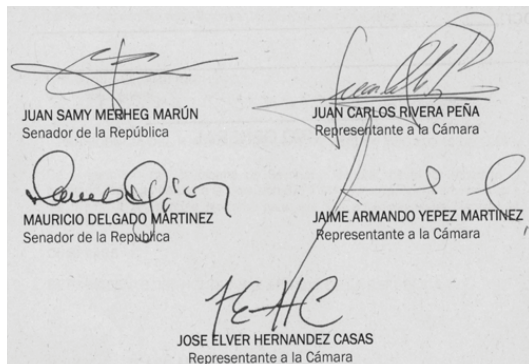 JUAN SAMY MERHEG MARÚN
Senador de la República
JUAN CARLOS RIVERA PEÑA
Representante a la Cámara
MAURICIO DELGADO MARTINEZ
Senador de la Republica
JAIME ARMANDO YEPEZ MARTINEZ
Representante a la Cámara
JOSE ELVER HERNANDEZ CASAS
Representante a la Cámara